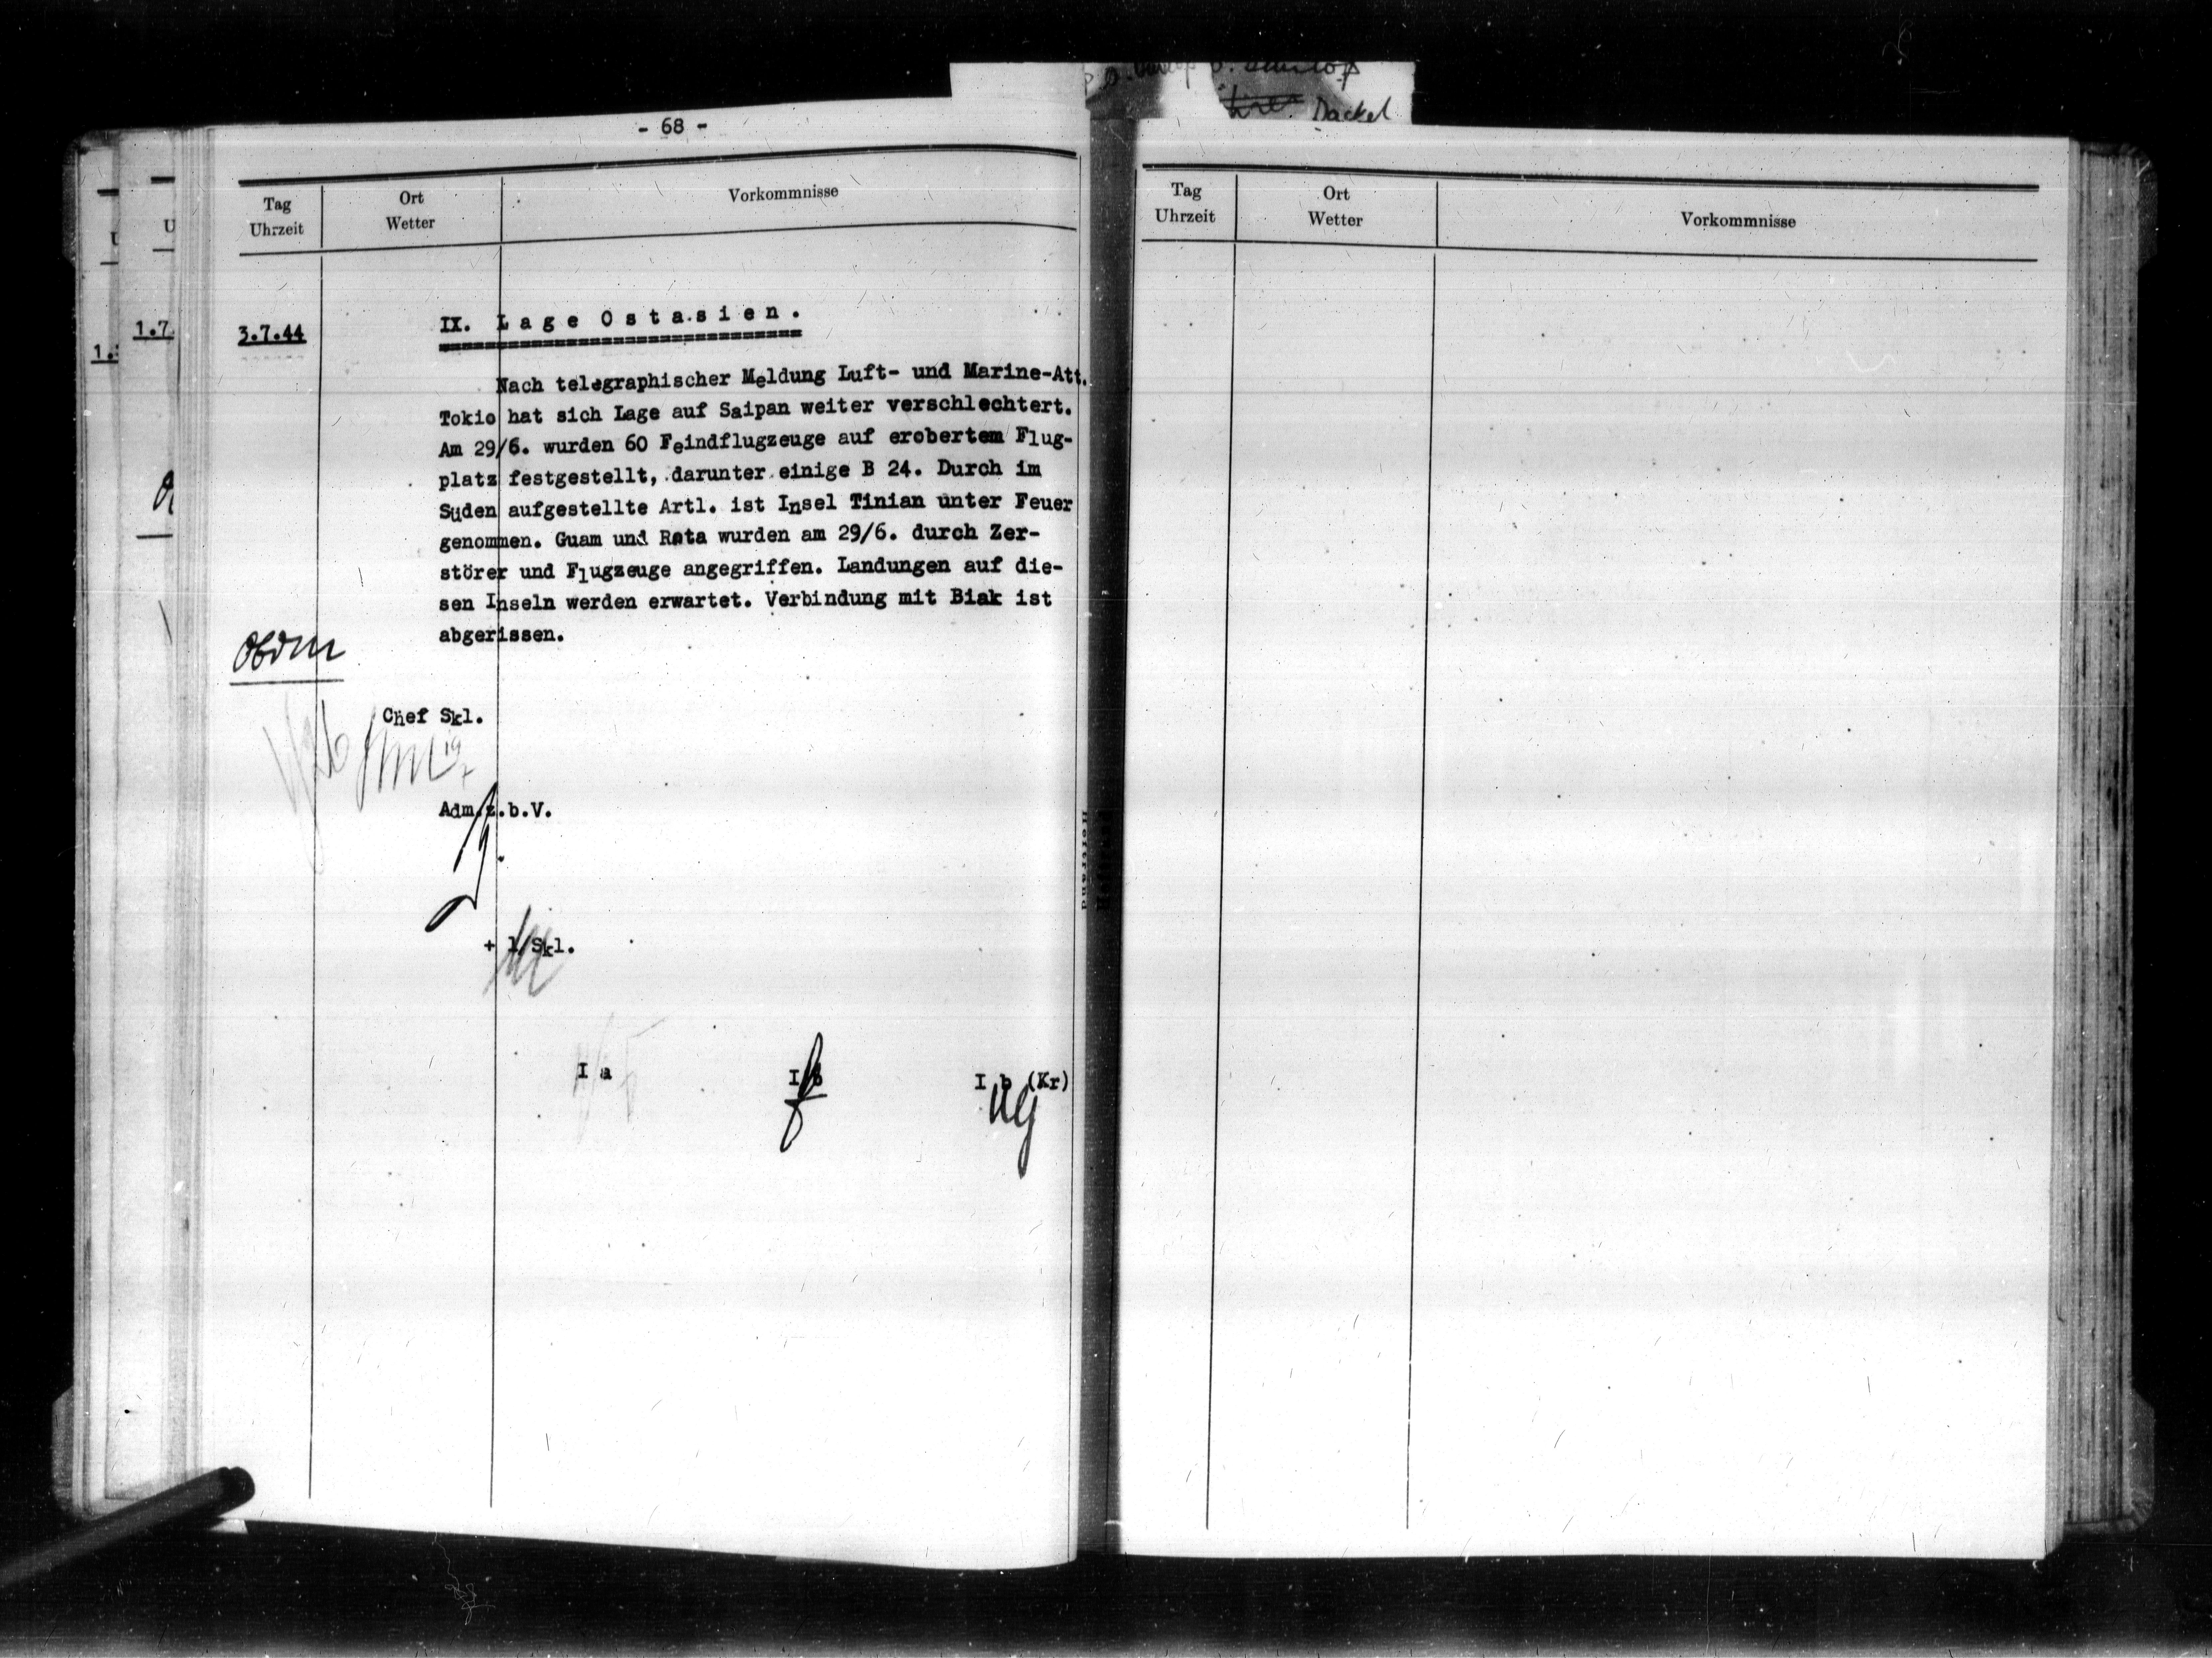 Dackel
- 68 -
Tag
Uhrzeit
Ort
Wetter
Vorkommnisse
1.7
3.7.44
IX. Lage Ostasien.
Nach telegraphischer Meldung Luft- und Marine-Att.
Tokio hat sich Lage auf Saipan weiter verschlechtert.
Am 29/6. wurden 60 Feindflugzeuge auf erobertem Flug-
platz festgestellt, darunter einige B 24. Durch im
Süden aufgestellte Artl. ist Insel Tinian unter Feuer
genommen. Guam und Rota wurden am 29/6. durch Zer-
störer und Flugzeuge angegriffen. Landungen auf die-
sen Inseln werden erwartet. Verbindung mit Biak ist
abgerissen.
ObdM
Chef Skl.
Adm.z.b.V.
+ 1/Skl.
I a
I b
I b (Kr)
Tag
Uhrzeit
Ort
Wetter
Vorkommnisse